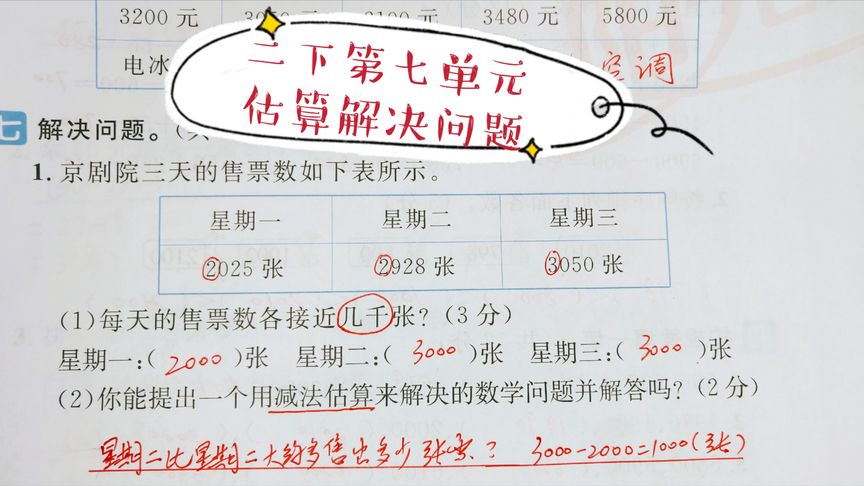 3200 元 3480 元 5800 元
电冰 空调
二下第七单元
估算解决问题
七 解决问题。
1. 京剧院三天的售票数如下表所示。
星期一 星期二 星期三
2025 张 2928 张 3050 张
(1)每天的售票数各接近几千张？(3 分)
星期一:( 2000 )张 星期二:( 3000 )张 星期三:( 3000 )张
(2)你能提出一个用减法估算来解决的数学问题并解答吗？(2 分)
星期二比星期二大约多售出多少张票？ 3000-2000=1000(张)